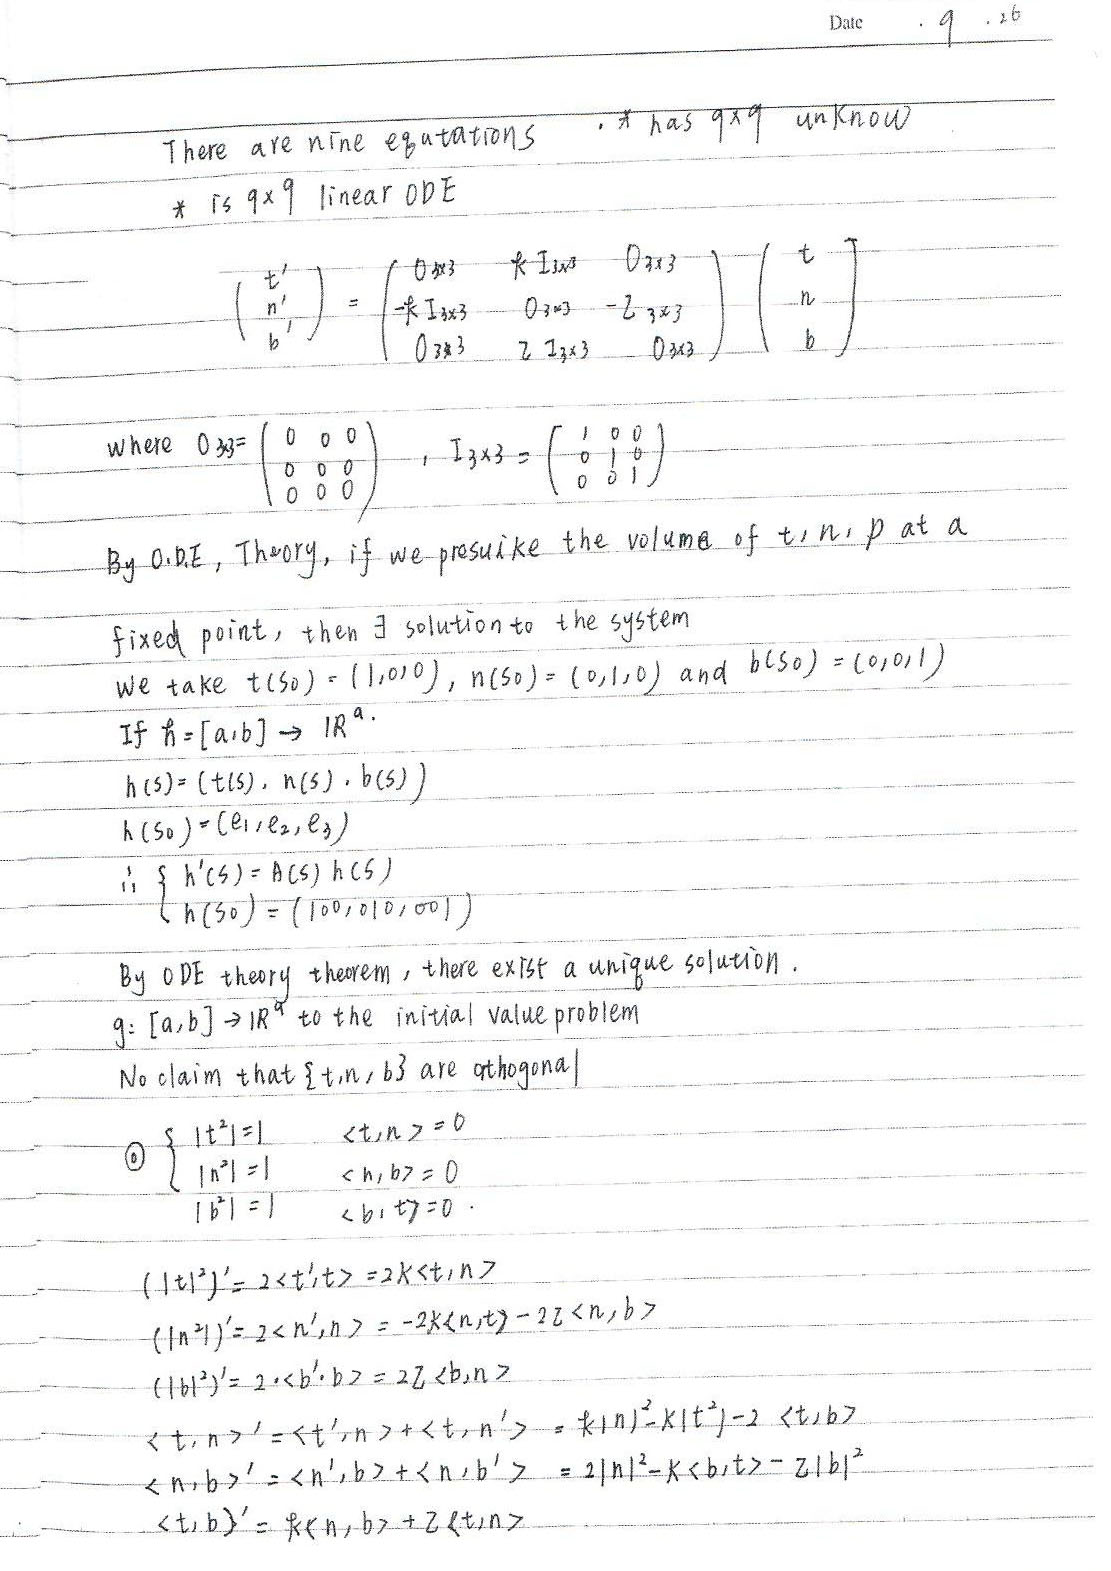 Date . 9 . 26
There are nine equtations . * has 9x9 unknow
* is 9x9 linear ODE
( t' n' b' ) = ( 0 3x3 k I3x3 0 3x3
-k I3x3 0 3x3 -Z 3x3
0 3x3 Z I3x3 0 3x3 ) ( t n b ]
where 0 3x3 = ( 0 0 0
0 0 0
0 0 0 ) , I3x3 = ( 1 0 0
0 1 0
0 0 1 )
By O.D.E, Theory, if we presuike the volume of t, n, p at a
fixed point, then ∃ solution to the system
We take t(S0) = (1,0,0), n(S0) = (0,1,0) and b(S0) = (0,0,1)
If h = [a,b] → IR9.
h(s) = (t(s), n(s), b(s))
h(S0) = (e1, e2, e3)
∴ { h'(s) = A(s) h(s)
h(S0) = (100, 010, 001)
By ODE theory theorem, there exist a unique solution.
g: [a,b] → IR9 to the initial value problem
No claim that {t,n,b} are orthogonal
{ |t²| = 1 <t,n> = 0
|n²| = 1 <n,b> = 0
|b²| = 1 <b,t> = 0 .
(|t|²)' = 2<t',t> = 2k<t,n>
(|n²|)' = 2<n',n> = -2k<n,t> - 2Z<n,b>
(|b|²)' = 2·<b'·b> = 2Z<b,n>
<t,n>' = <t',n> + <t,n'> = k|n|² - k|t²| - 2 <t,b>
<n,b>' = <n',b> + <n,b'> = 2|n|² - k<b,t> - Z|b|²
<t,b>' = k<n,b> + Z<t,n>